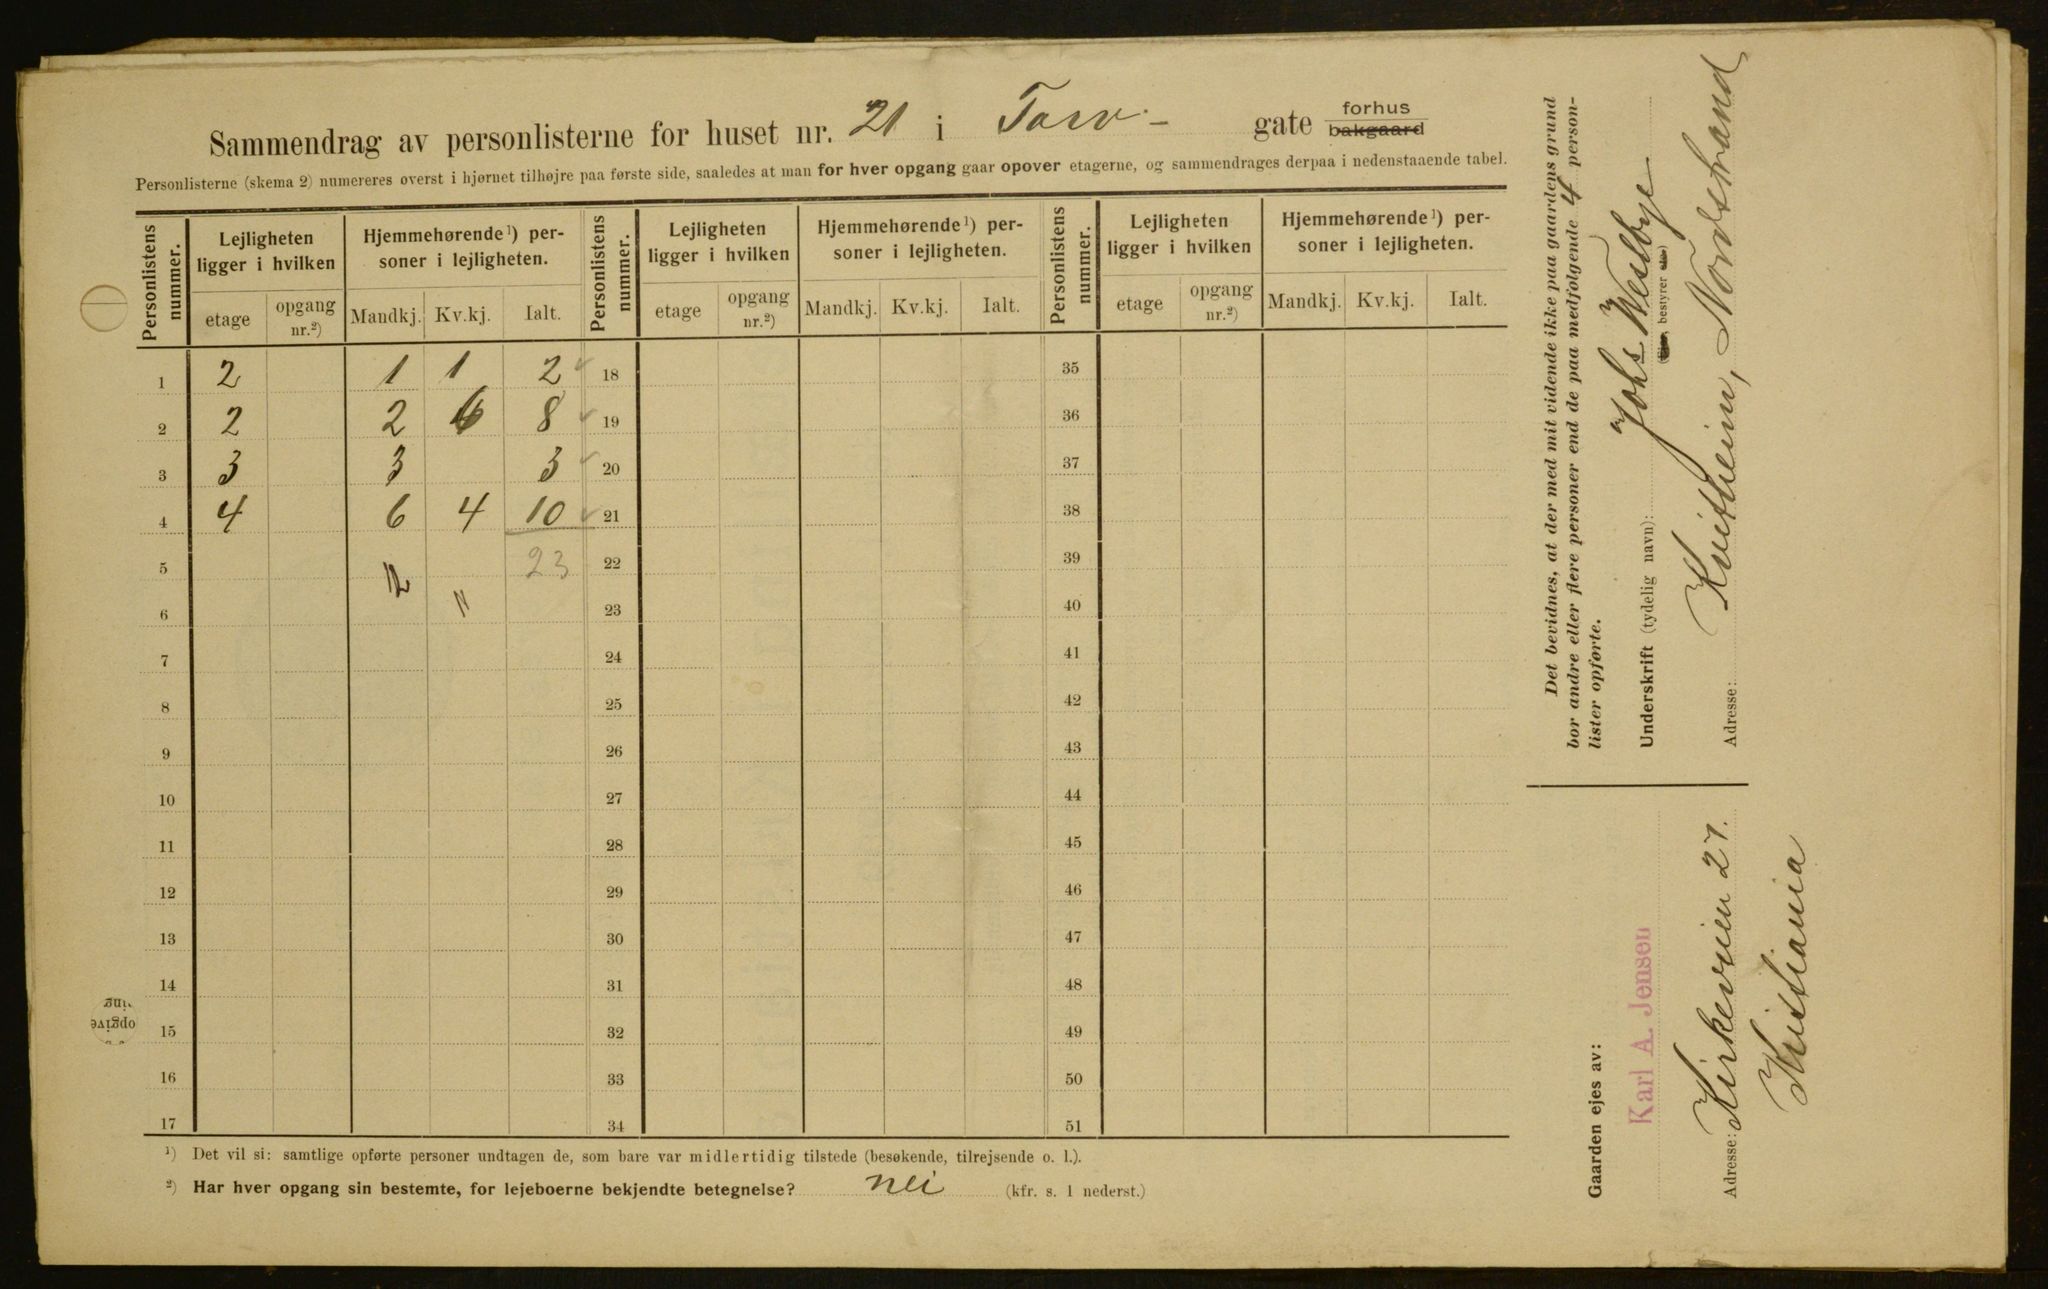 Sammendrag av personlisterne for huset nr. 21 i Torv- gate forhus bakgaard
Personlisterne (skema 2) numereres øverst i hjørnet tilhøjre paa første side, saaledes at man for hver opgang gaar opover etagerne, og sammendrages derpaa i nedenstaaende tabel.
Personlistens nummer. Lejligheten ligger i hvilken Hjemmehørende¹) personer i lejligheten. Personlistens nummer. Lejligheten ligger i hvilken Hjemmehørende¹) personer i lejligheten. Personlistens nummer. Lejligheten ligger i hvilken Hjemmehørende¹) personer i lejligheten.
etage opgang nr.²) Mandkj. Kv.kj. Ialt. etage opgang nr.²) Mandkj. Kv.kj. Ialt. etage opgang nr.²) Mandkj. Kv.kj. Ialt.
1 2 1 1 2 18 35
2 2 2 6 8 19 36
3 3 3 3 20 37
4 4 6 4 10 21 38
5 23 22 39
6 23 40
7 24 41
8 25 42
9 26 43
10 27 44
11 28 45
12 29 46
13 30 47
14 31 48
15 32 49
16 33 50
17 34 51
¹) Det vil si: samtlige opførte personer undtagen de, som bare var midlertidig tilstede (besøkende, tilrejsende o. l.).
²) Har hver opgang sin bestemte, for lejeboerne bekjendte betegnelse? nei (kfr. s. 1 nederst.)
Det bevidnes, at der med mit vidende ikke paa gaardens grund
bor andre eller flere personer end de paa medfølgende 4 person-
lister opførte.
Underskrift (tydelig navn): Johs Westbye
(Ejer, bestyrer etc.)
Adresse: Nordstrand
Gaarden ejes av:
Karl A. Jensen
Adresse: Kirkeveien 27.
Kristiania
opgive